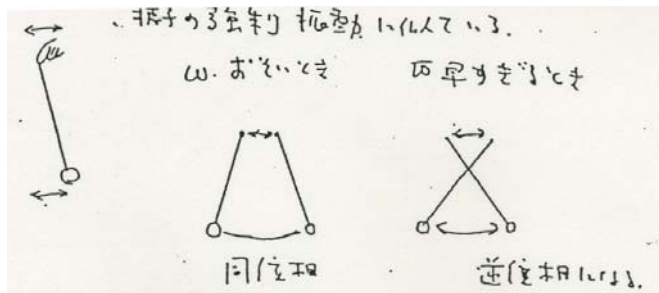 振子の強制振動に似ている.
ω. おそいとき
ω早すぎるとき
同位相
逆位相になる.